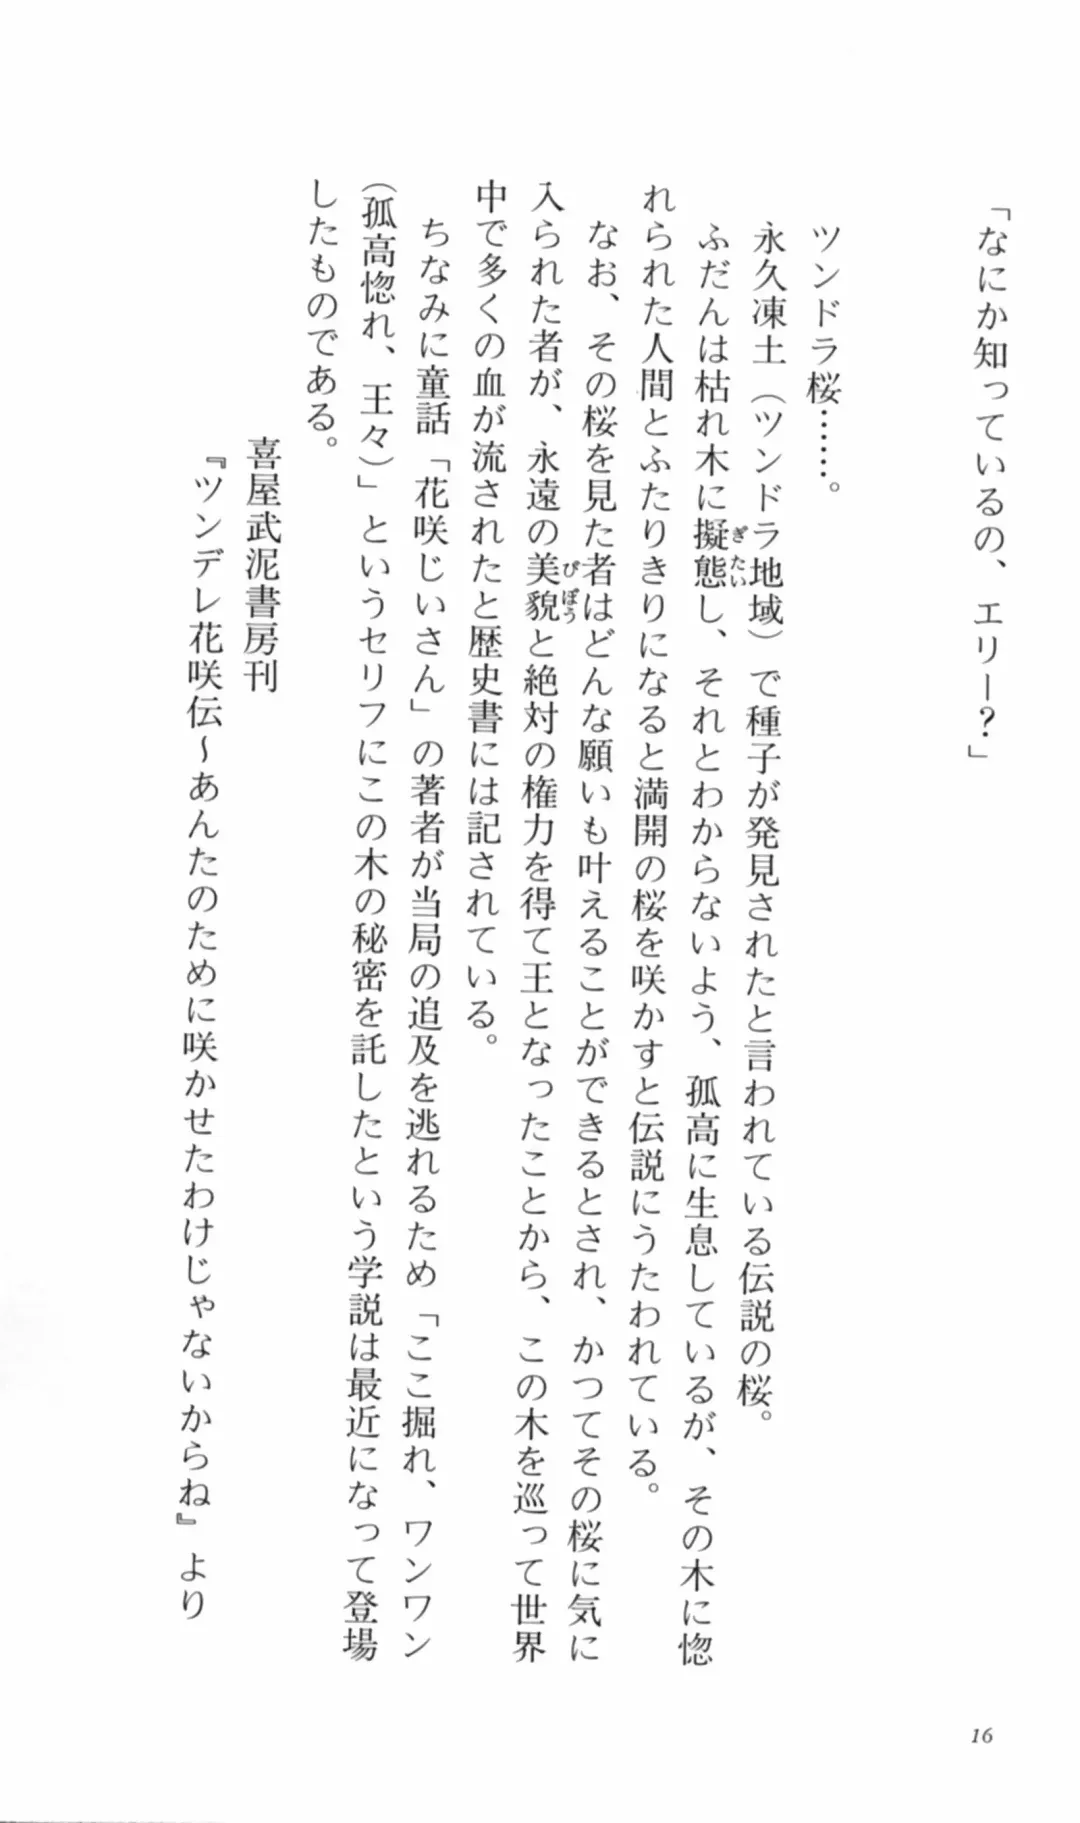 「なにか知っているの、エリー？」
ツンドラ桜……。
永久凍土（ツンドラ地域）で種子が発見されたと言われている伝説の桜。
ふだんは枯れ木に擬態し、それとわからないよう、孤高に生息しているが、その木に惚
れられた人間とふたりきりになると満開の桜を咲かすと伝説にうたわれている。
なお、その桜を見た者はどんな願いも叶えることができるとされ、かつてその桜に気に
入られた者が、永遠の美貌と絶対の権力を得て王となったことから、この木を巡って世界
中で多くの血が流されたと歴史書には記されている。
ちなみに童話「花咲じいさん」の著者が当局の追及を逃れるため「ここ掘れ、ワンワン
（孤高惚れ、王々）」というセリフにこの木の秘密を託したという学説は最近になって登場
したものである。
喜屋武泥書房刊
『ツンデレ花咲伝～あんたのために咲かせたわけじゃないからね』より
16